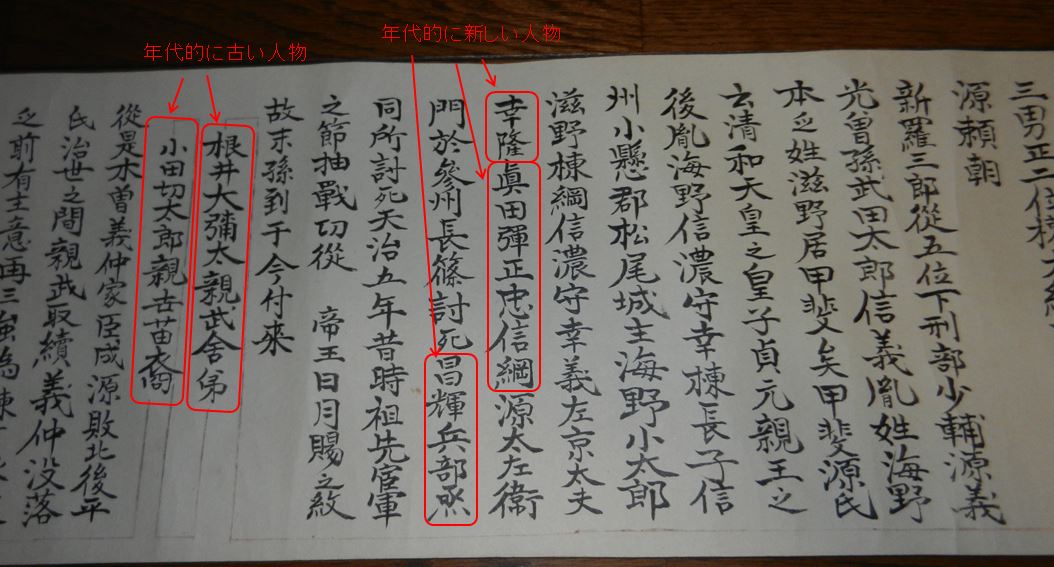 年代的に新しい人物
年代的に古い人物
三男正二位
源頼朝
新羅三郎從五位下刑部少輔源義
光曽孫武田太郎信義胤姓海野
本之姓滋野居甲斐矣甲斐源氏
玄清和天皇之皇子貞元親王之
後胤海野信濃守幸棟長子信
州小懸郡松尾城主海野小太郎
滋野棟綱信濃守幸義左京太夫
幸隆眞田彈正忠信綱源太左衛
門於參州長篠討死昌輝兵部烝
同所討死天治五年昔時祖先宦軍
之節抽戰切從 帝王日月賜之紋
故末孫到于今付来
根井大彌太親武舍弟
小田切太郎親吉苗裔
從是木曽義仲家臣成源敗北後平
氏治世之間親武取續義仲没落
之前有主意再三強為